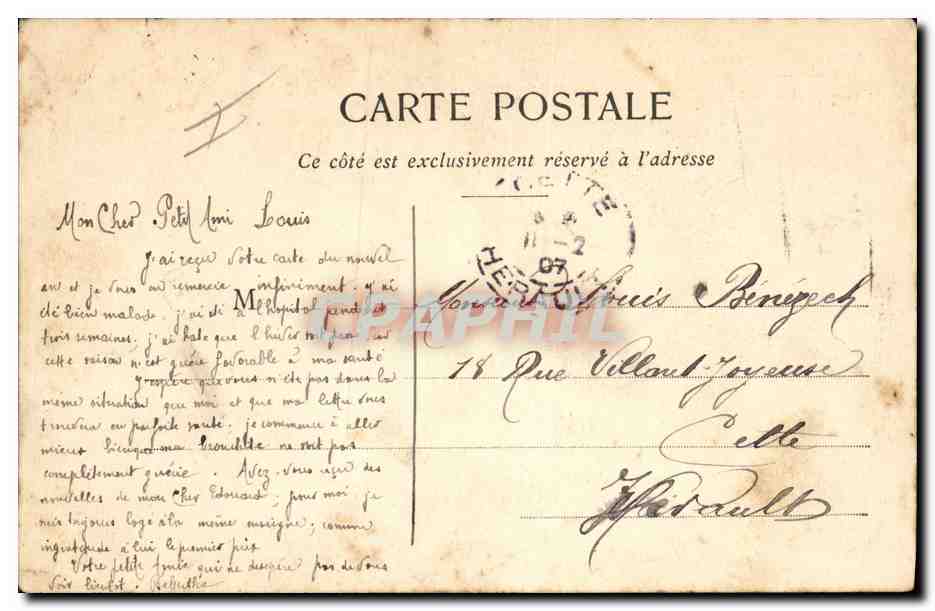 CARTE POSTALE
Ce côté est exclusivement réservé à l'adresse
Mon Cher Petit Ami Louis
J'ai reçu votre carte du nouvel
an et je vous en remercie infiniment. j'ai
été bien malade. j'ai été à l'hopital pendant
trois semaines. j'ai hate que l'hiver soit
cette saison n'est guère favorable à ma santé
J'espère que vous n'ête pas dans la
même situation que moi et que ma lettre vous
trouvera en parfaite santé. je commence à aller
mieux bien que ma bronchite ne soit pas
complètement guérie. Avez-vous reçu des
nouvelles de mon Cher Edouard; pour moi, je
suis toujours logé à la même enseigne; comme
ingratitude à lui le premier prix
Votre petite amie qui ne despère pas de vous
voir bientot.
M
CETTE
11 -2
07
HERAULT
Monsieur Louis Bénézech
18 Rue Villaret-Joyeuse
Cette
Hérault
CPAPHIL